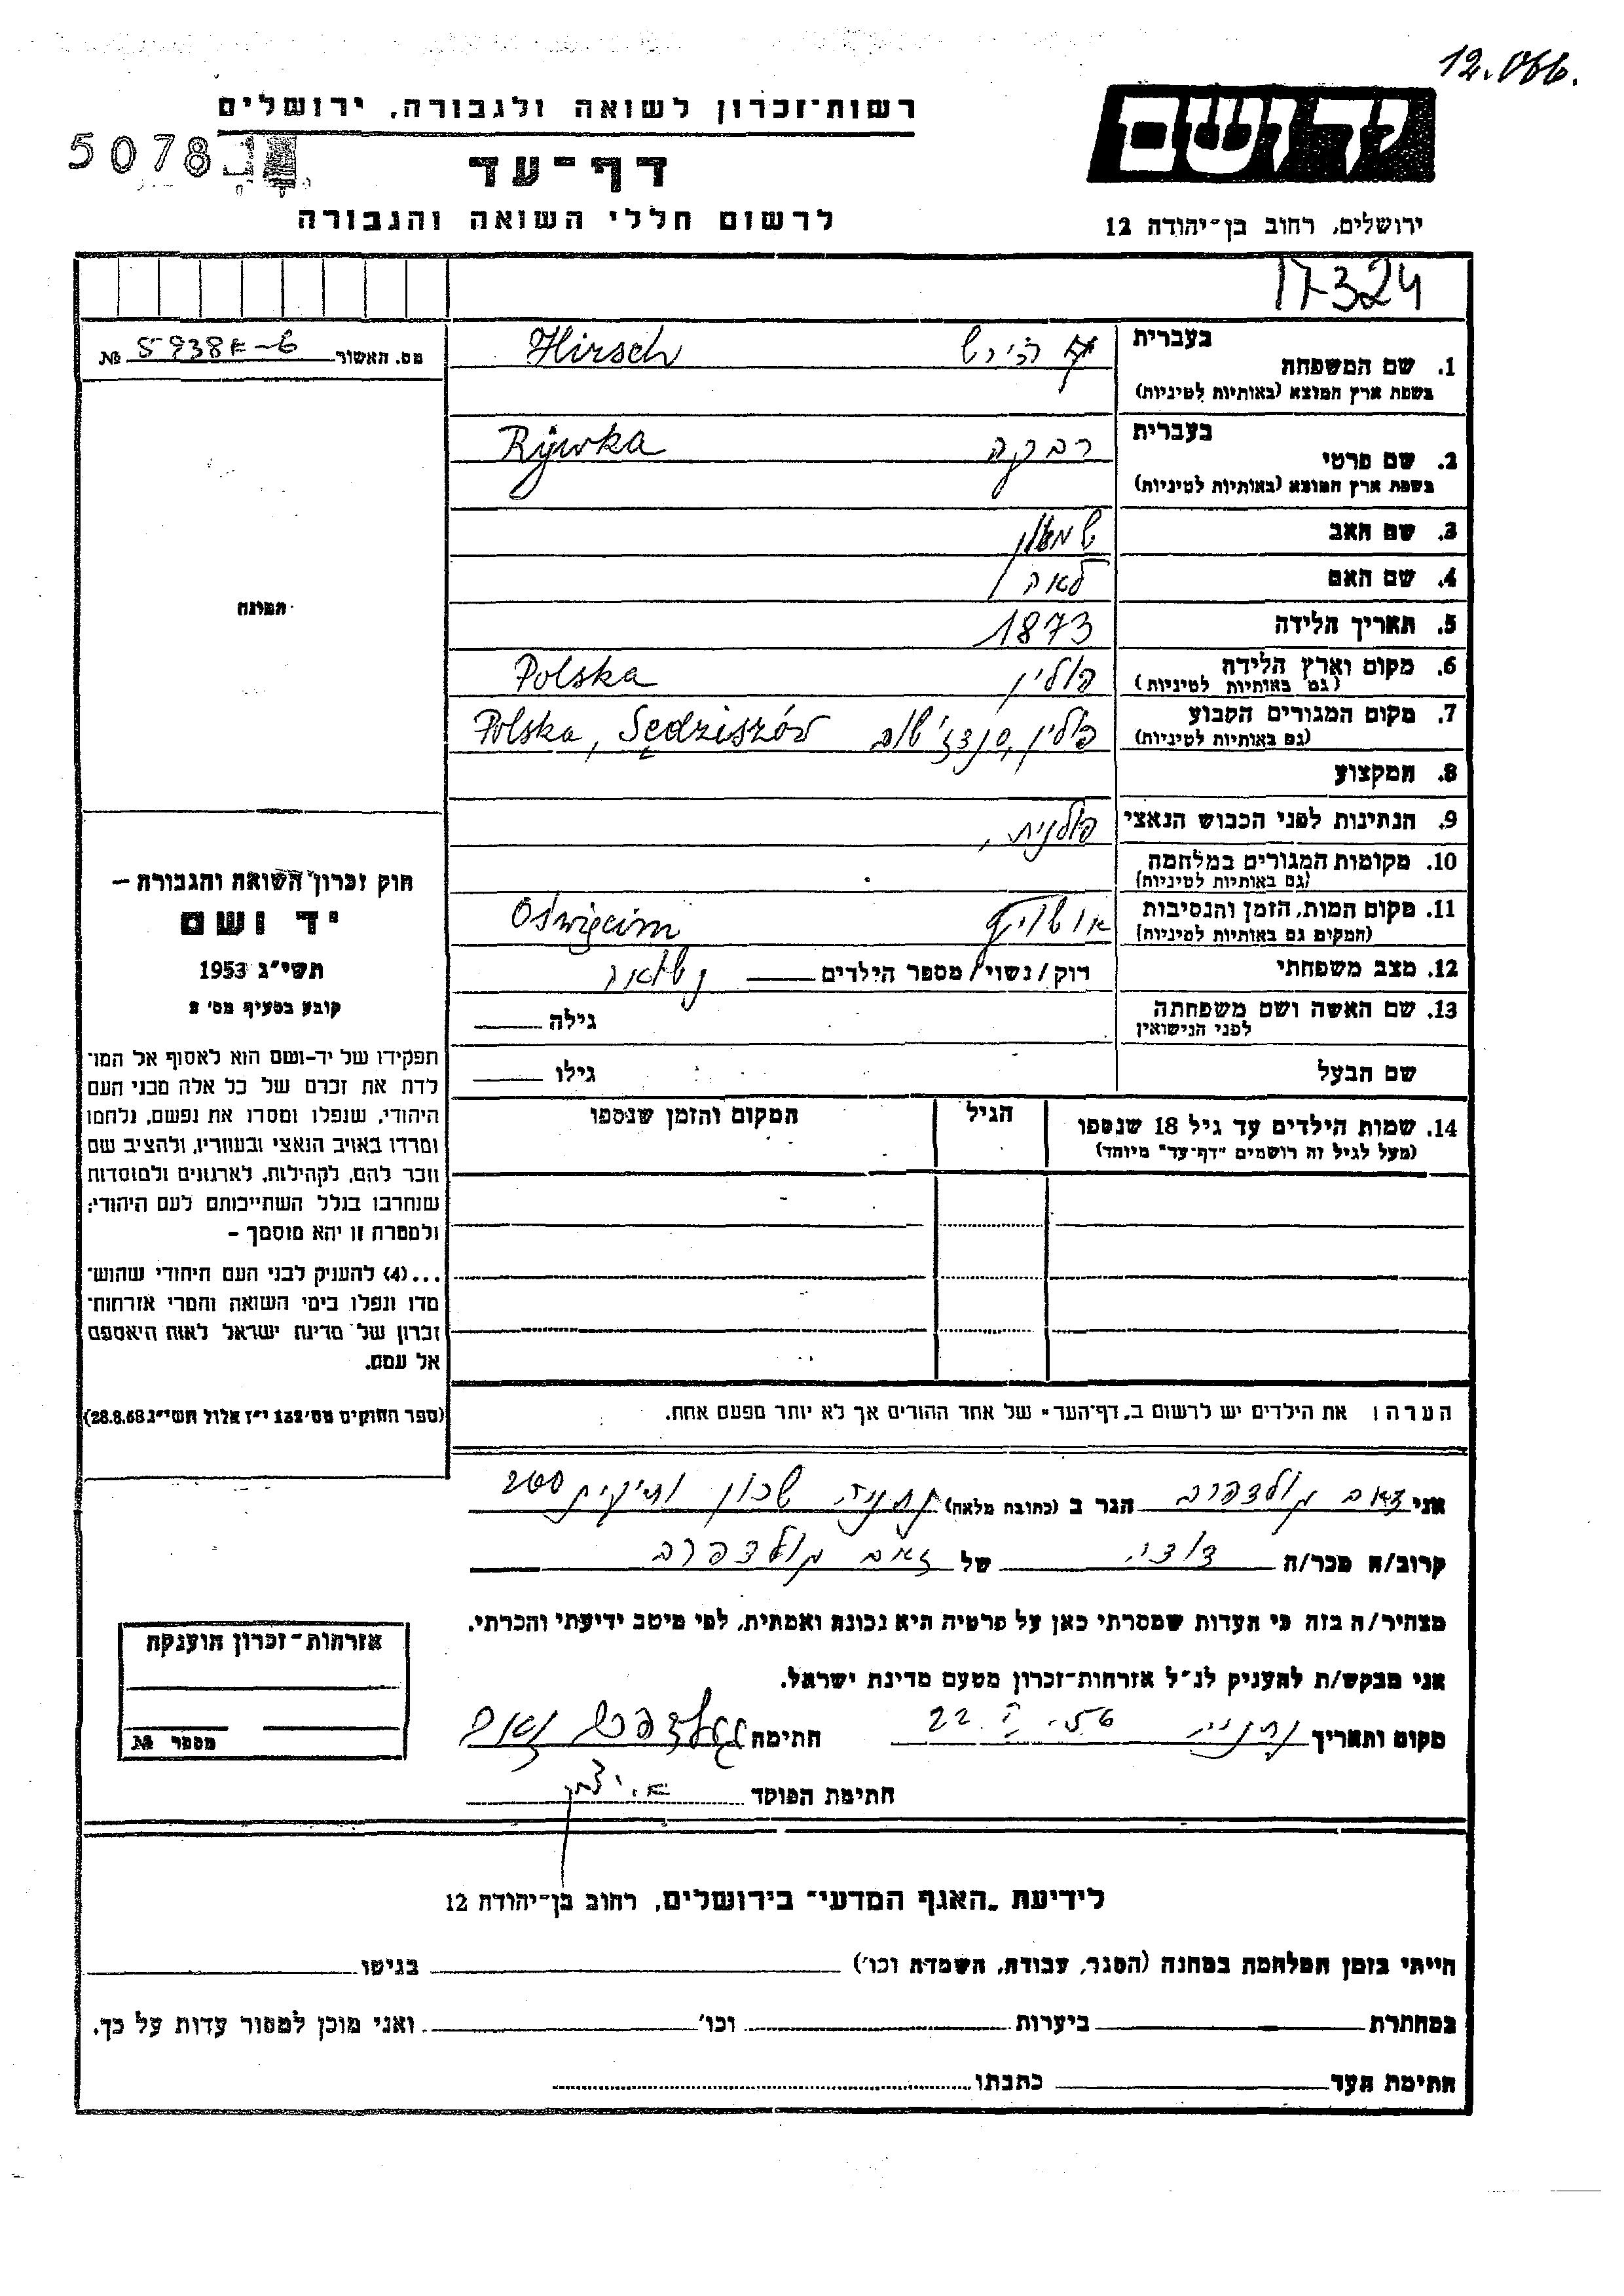 12.066.
רשות־זכרון לשואה ולגבורה, ירושלים
יד ושם
50781
דף־עד
לרשום חללי השואה והגבורה
ירושלים, רחוב בן־יהודה 12
17324
מס. האשור № 5938F-6
בעברית
1. שם המשפחה הירש Hirsch
בשפת ארץ המוצא (באותיות לטיניות)
בעברית
2. שם פרטי רבקה Rywka
בשפת ארץ המוצא (באותיות לטיניות)
3. שם האב שמעון
4. שם האם לאה
5. תאריך הלידה 1873
6. מקום וארץ הלידה פולין Polska
(גם באותיות לטיניות)
7. מקום המגורים הקבוע פולין, סנדז'שוב Polska, Sędziszów
(גם באותיות לטיניות)
8. המקצוע
9. הנתינות לפני הכבוש הנאצי פולנית,
10. מקומות המגורים במלחמה
(גם באותיות לטיניות)
11. מקום המות, הזמן והנסיבות אושויץ Oświęcim
(המקום גם באותיות לטיניות)
12. מצב משפחתי רוק/נשוי/מספר הילדים נשואה
13. שם האשה ושם משפחתה גילה
לפני הנישואין
שם הבעל גילו
14. שמות הילדים עד גיל 18 שנספו הגיל המקום והזמן שנספו
(מעל לגיל זה רושמים "דף־עד" מיוחד)
התמונה
חוק זכרון השואה והגבורה –
יד ושם
תשי"ג 1953
קובע בסעיף מס' 2
תפקידו של יד-ושם הוא לאסוף אל המו־
לדת את זכרם של כל אלה מבני העם
היהודי, שנפלו ומסרו את נפשם, נלחמו
ומרדו באויב הנאצי ובעוזריו, ולהציב שם
וזכר להם, לקהילות, לארגונים ולמוסדות
שנחרבו בגלל השתייכותם לעם היהודי;
ולמטרה זו יהא מוסמך –
...(4) להעניק לבני העם היהודי שהוש־
מדו ונפלו בימי השואה והמרי אזרחות־
זכרון של מדינת ישראל לאות היאספם
אל עמם.
(ספר החוקים מס' 132 י"ז אלול תשי"ג 28.8.53)
הערה: את הילדים יש לרשום ב"דף־העד" של אחד ההורים אך לא יותר מפעם אחת.
אני זאב גולדפרב הגר ב (כתובת מלאה) נתניה שכון ותיקים 200
קרוב/ה מכר/ה דודי של זאב גולדפרב
מצהיר/ה בזה כי העדות שמסרתי כאן על פרטיה היא נכונה ואמתית, לפי מיטב ידיעתי והכרתי.
אני מבקש/ת להעניק לנ"ל אזרחות־זכרון מטעם מדינת ישראל.
מקום ותאריך נתניה 22. .56 חתימה גולדפרב זאב
חתימת הפוקד
אזרחות־זכרון הוענקה
מספר №
לידיעת "האגף המדעי" בירושלים, רחוב בן־יהודה 12
הייתי בזמן המלחמה במחנה (הסגר, עבודה, השמדה וכו') בגיטו
במחתרת ביערות וכו' ואני מוכן למסור עדות על כך.
חתימת העד כתבתו